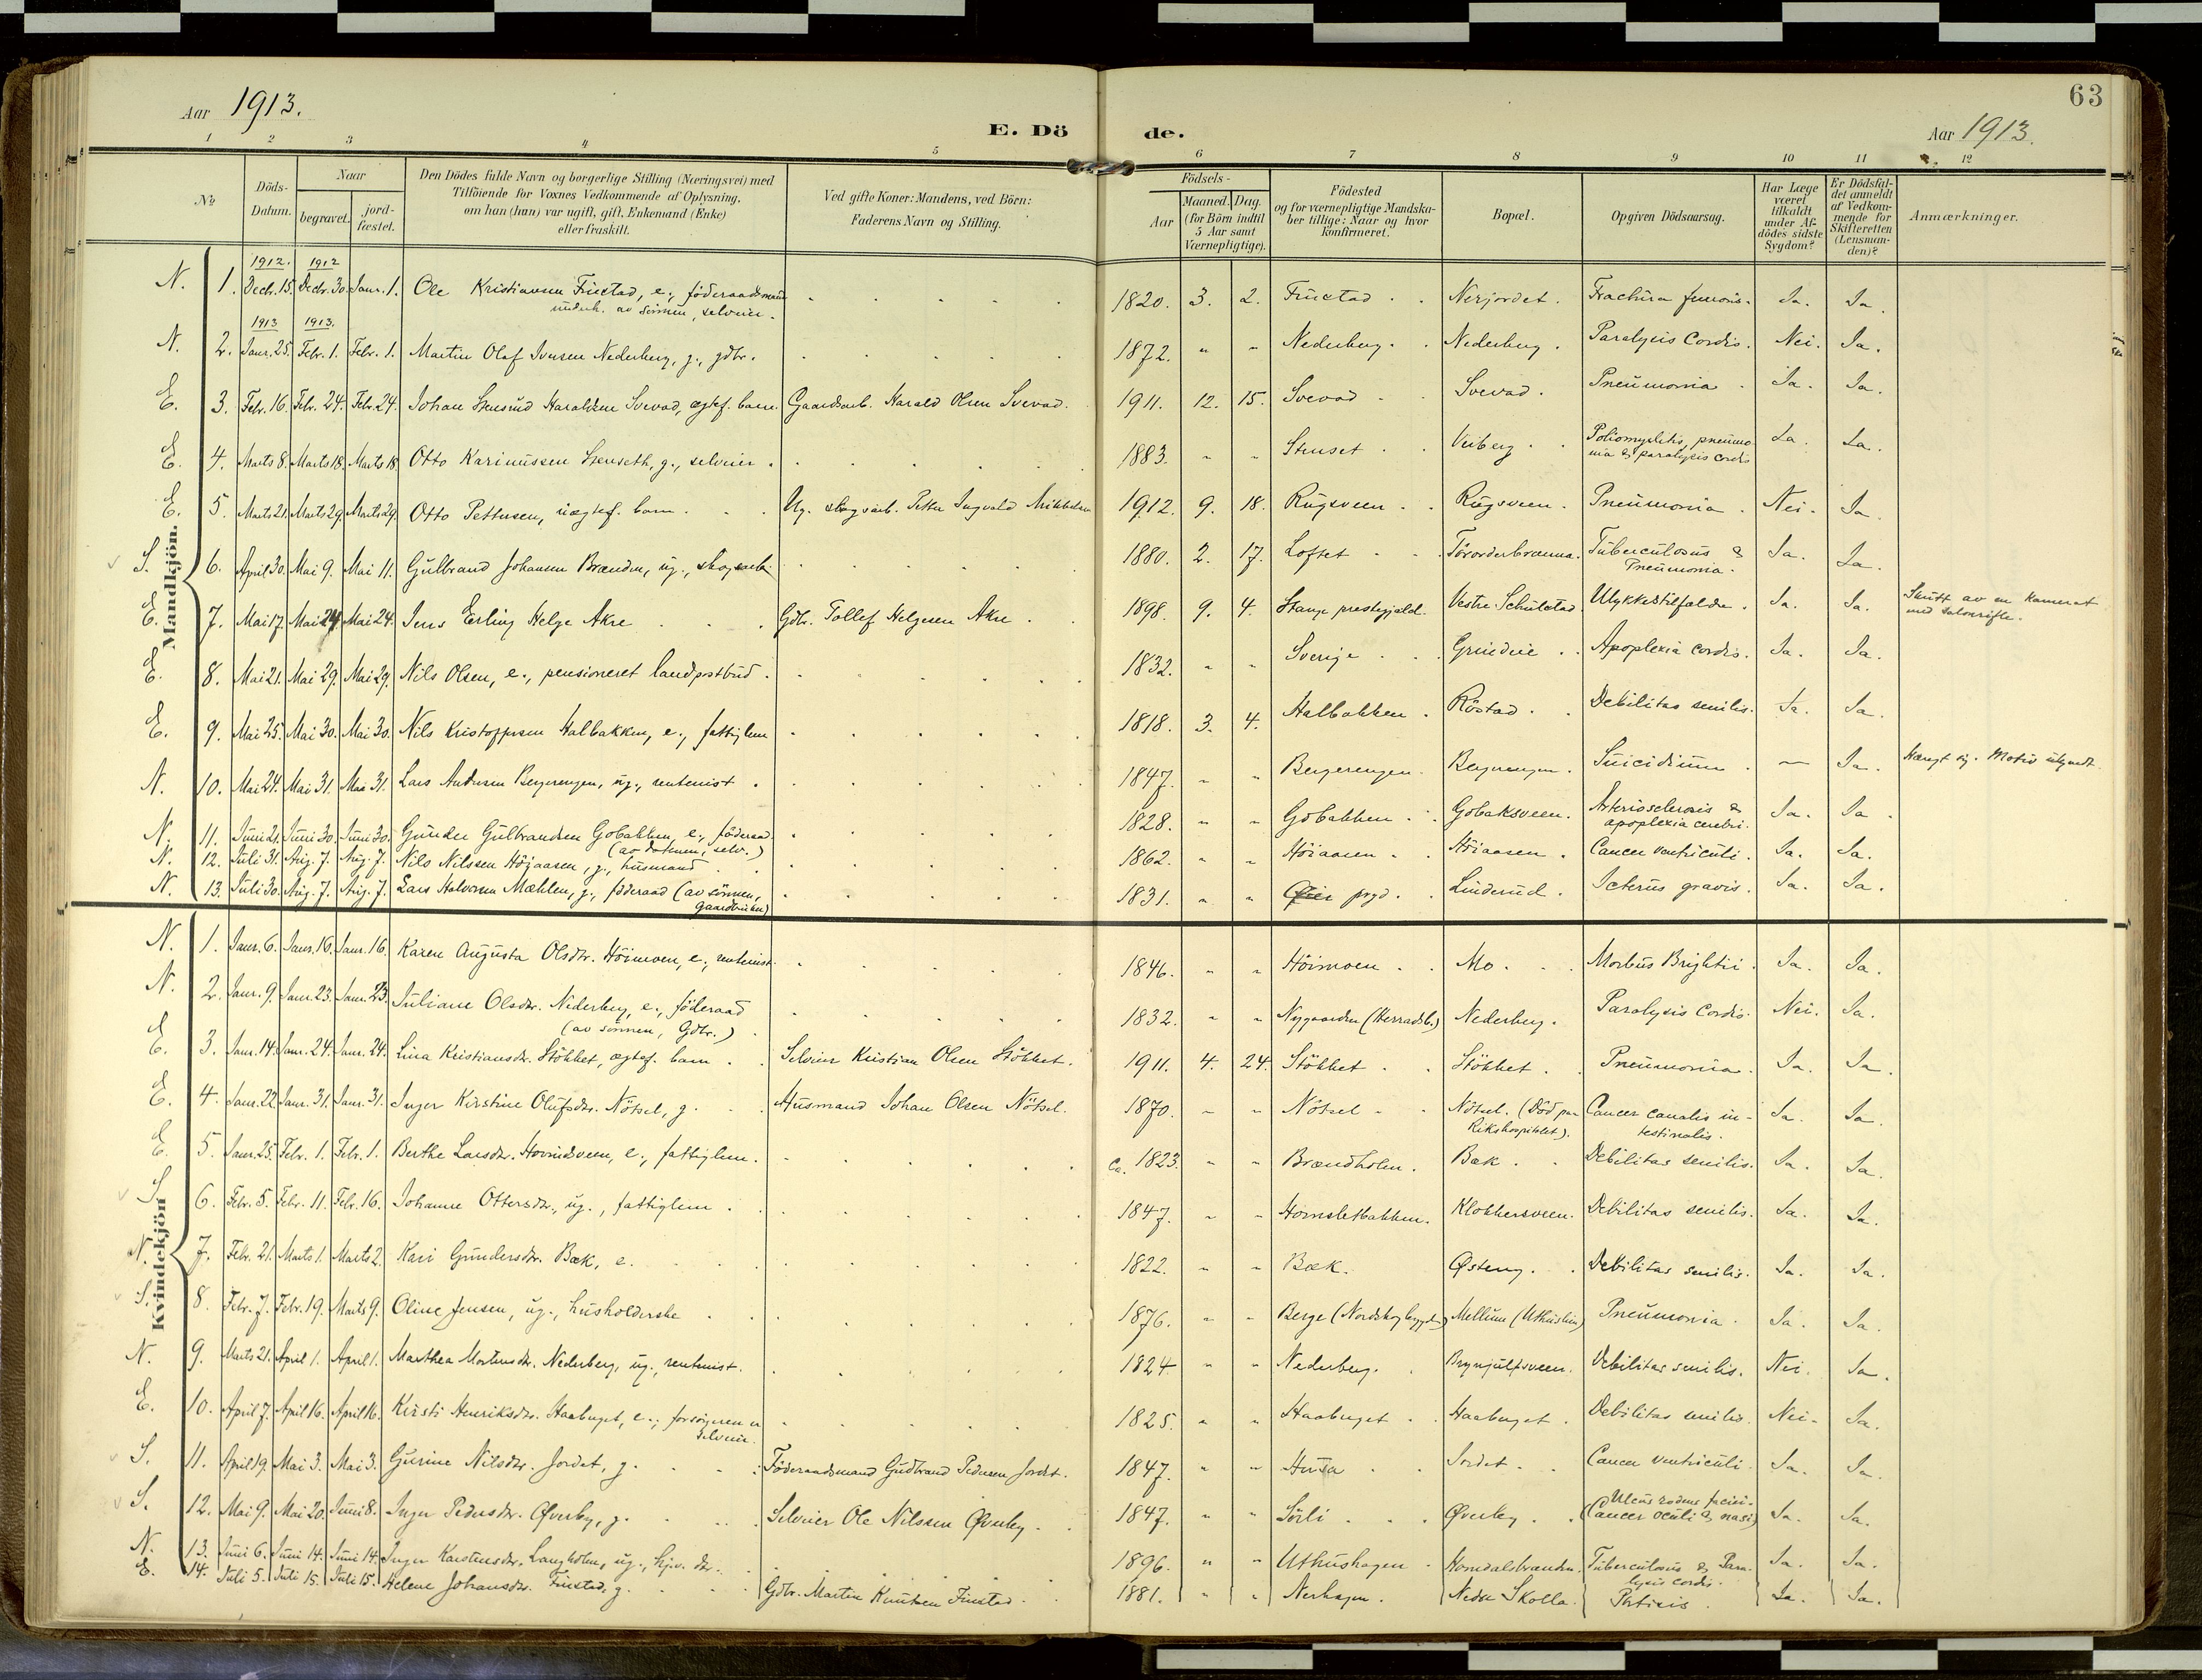 63
Aar 1913.
E. Dö de.
Aar 1913.
1 2 3 4 5 6 7 8 9 10 11 12
No
Döds-Datum.
Naar begravet. jord-fæstet.
Den Dödes fulde Navn og borgerlige Stilling (Næringsvei) med Tilföiende for Voxnes Vedkommende af Oplysning, om han (hun) var ugift, gift, Enkemand (Enke) eller fraskilt.
Ved gifte Koner: Mandens, ved Börn: Faderens Navn og Stilling.
Födsels-
Aar Maaned. Dag. (for Börn indtil 5 Aar samt Værnepligtige).
Födested og for værnepligtige Mandskaber tillige: Naar og hvor konfirmeret.
Bopæl.
Opgiven Dödsaarsag.
Har Læge været tilkaldt under Afdödes sidste Sygdom?
Er Dödsfaldet anmeldt af Vedkommende for Skifteretten (Lensmanden)?
Anmærkninger.
Mandkjön.
1912. 1912
N. 1. Decbr. 15. Decbr. 30. Janr. 1. Ole Kristiansen Finstad, e., föderaadsmand 1820. 3. 2. Finstad Nerjordet. Fractura femoris. Ja. Ja.
underh. av sönnen, selveier.
1913 1913.
N. 2. Janr. 25. Febr. 1. Febr. 1. Martin Olaf Iversen Nederberg, g., gdbr. 1872. " " Nederberg. Nederberg. Paralysis Cordis. Nei. Ja.
E. 3. Febr. 16. Febr. 24. Febr. 24. Johan Haraldsen Svevad, ægtef. barn. Gaardsarb. Harald Olsen Svevad. 1911. 12. 15. Svevad Svevad. Pneumonia Ja. Ja.
E. 4. Marts 8. Marts 18. Marts 18. Otto Karinussen Stenseth, g., selveier. 1883. " " Stenset Veiberg. Poliomyelitis, pneumo
nia & paralysis cordis Ja. Ja.
E. 5. Marts 21. Marts 29. Marts 29. Otto Pettersen, uægtef. barn. Ug. skogsarb. Petter Ingvald Mikkelsen 1912. 9. 18. Rugsveen Rugsveen. Pneumonia. Nei. Ja.
S. 6. April 30. Mai 9. Mai 11. Gulbrand Johansen Brænden, ug., skogsarb. 1880. 2. 17. Loftet Tuberculosus &
Pneumonia. Ja. Ja.
E. 7. Mai 17. Mai 24. Mai 24. Jens Erling Helge Akre Gdbr. Tollef Helgesen Akre. 1898. 9. 4. Stange prestegjæld. Vestre Schulstad. Ulykkestilfælde. Ja. Ja. Skutt av en kamerat
med salonrifle.
E. 8. Mai 21. Mai 29. Mai 29. Nils Olsen, e., pensioneret landpostbud. 1832. " " Sverige Grindeie Apoplexia cordis. Ja. Ja.
E. 9. Mai 25. Mai 30. Mai 30. Nils Kristoffersen Halbakken, e., fattiglem 1818. 3. 4. Halbakken. Röstad. Debilitas senilis. Ja. Ja.
N. 10. Mai 24. Mai 31. Mai 31. Lars Andersen Bergerengen, ug., rentenist. 1847. " " Bergerengen. Bergerengen. Suicidium. — Ja. Hængt sig. Motiv ukjendt.
N. 11. Juni 21. Juni 30. Juni 30. Gunder Gulbrandsen Gobakken, e., föderaad
(av datteren, selv.) 1828. " " Gobakken Gobaksveen. Arteriosclerosis &
apoplexia cerebri. Ja. Ja.
N. 12. Juli 31. Aug. 7. Aug. 7. Nils Nilssen Höjaasen, g., husmand 1862. " " Höiaasen Höiaasen. Cancer ventriculi. Ja. Ja.
N. 13. Juli 30. Aug. 7. Aug. 7. Lars Halvorsen Mæhlen, g., föderaad (av sönnen,
gaardbruker) 1831. " " prgd. Linderud. Icterus gravis. Ja. Ja.
Kvindekjön
N. 1. Janr. 6. Janr. 16. Janr. 16. Karen Augusta Olsdtr. Höimoen, e., rentenist. 1846. " " Höimoen Mo. Morbus Brightii. Ja. Ja.
N. 2. Janr. 9. Janr. 23. Janr. 23. Juliane Olsdtr. Nederberg, e., föderaad
(av sönnen, Gdbr.) 1832. " " Nygaarden (Herradsb.) Nederberg. Paralysis Cordis. Nei. Ja.
E. 3. Janr. 14. Janr. 24. Janr. 24. Lina Kristiansdtr. Stökket, ægtef. barn. Selveier Kristian Olsen Stökket. 1911. 4. 24. Stökket Stökket. Pneumonia. Ja. Ja.
E. 4. Janr. 22. Janr. 31. Janr. 31. Inger Kirstine Olufsdtr. Nötsel, g. Husmand Johan Olsen Nötsel. 1870. " " Nötsel Nötsel. (Död paa
Rikshospitalet). Cancer canalis in-
testinalis. Ja. Ja.
E. 5. Janr. 25. Febr. 1. Febr. 1. Berthe Larsdtr. Hovindsveen, e., fattiglem. ca. 1823. " " Brændholen. Bæk. Debilitas senilis. Ja. Ja.
S. 6. Febr. 5. Febr. 11. Febr. 16. Johanne Ottersdtr., ug., fattiglem. 1847. " " Hornsletbakken. Klokkersveen. Debilitas senilis. Ja. Ja.
N. 7. Febr. 21. Marts 1. Marts 2. Kari Gundersdtr. Bæk, e. 1822. " " Bæk. Østeng. Debilitas senilis. Ja. Ja.
S. 8. Febr. 7. Febr. 19. Marts 9. Oline Jensen, ug., husholderske 1876. " " Berge (Nordskogbygden) Mellum (Uthuslien) Pneumonia. Ja. Ja.
N. 9. Marts 21. April 1. April 1. Marthea Mortensdtr. Nederberg, ug., rentenist. 1824 " " Nederberg. Brynjulfsveen. Debilitas senilis. Nei. Ja.
E. 10. April 7. April 16. April 16. Kirsti Henriksdtr. Haaberget, e., forsörgeren er
selveier. 1825. " " Haaberget Haaberget. Debilitas senilis. Nei. Ja.
S. 11. April 19. Mai 3. Mai 3. Gurine Nilsdtr. Jordet, g. Föderaadsmand Gudbrand Pedersen Jordet. 1847. " " Jordet. Cancer ventriculi. Ja. Ja.
S. 12. Mai 9. Mai 20. Juni 8. Inger Pedersdtr. Øverby, g. Selveier Ole Nilssen Øverby. 1847. " " Sörli Øverby. Ulcus rodens faciei.
(Cancer oculi & nasi) Ja. Ja.
N. 13. Juni 6. Juni 14. Juni 14. Inger Karstensdtr. Langholen, ug., hjv. dtr. 1896. " " Uthushagen Horndalsbrænden. Tuberculosus & Para-
lysis cordis. Ja. Ja.
E. 14. Juli 5. Juli 15. Juli 15. Helene Johansdtr. Finstad, g. Gdbr. Martin Knutsen Finstad. 1881. " " Nerhagen. Nedre Skolla. Phtisis. Ja. Ja.